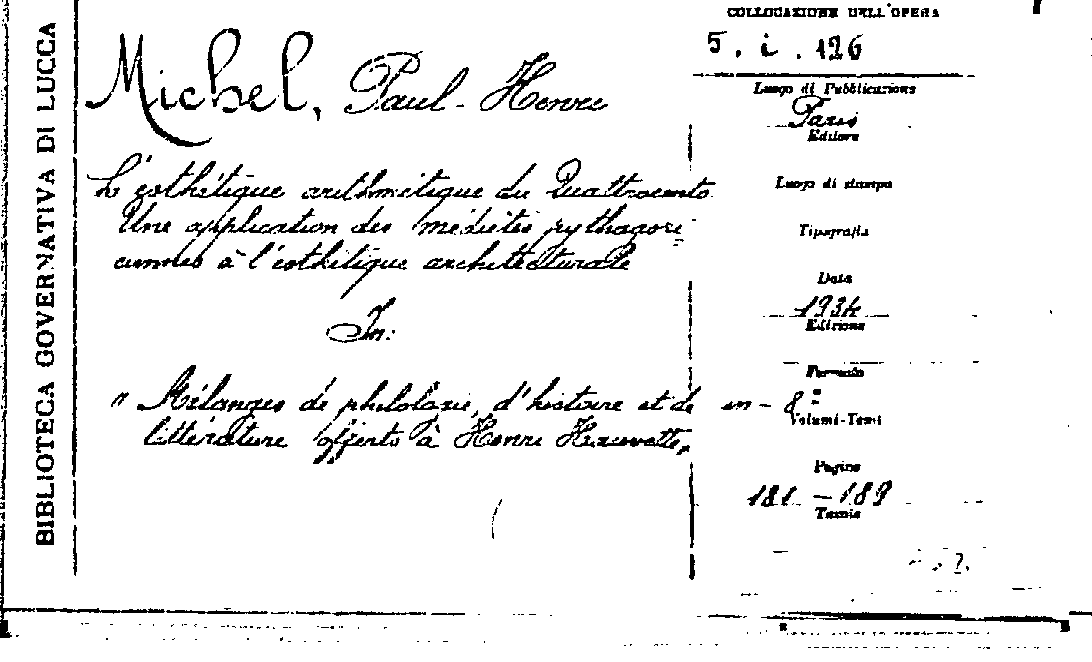 BIBLIOTECA GOVERNATIVA DI LUCCA
Michel, Paul-Henri
L'esthétique arithmétique du Quattrocento.
Une application des médiétés pythagori-
ciennes à l'esthétique architecturale
In:
"Mélanges de philologie, d'histoire et de
littérature offerts à Henri Hauvette,
COLLOCAZIONE DELL'OPERA
5. i. 126
Luogo di Pubblicazione
Paris
Editore
Luogo di stampa
Tipografia
Data
1934
Edizione
Formato
in-8º
Volumi-Tomi
Pagine
181-189
Tavole